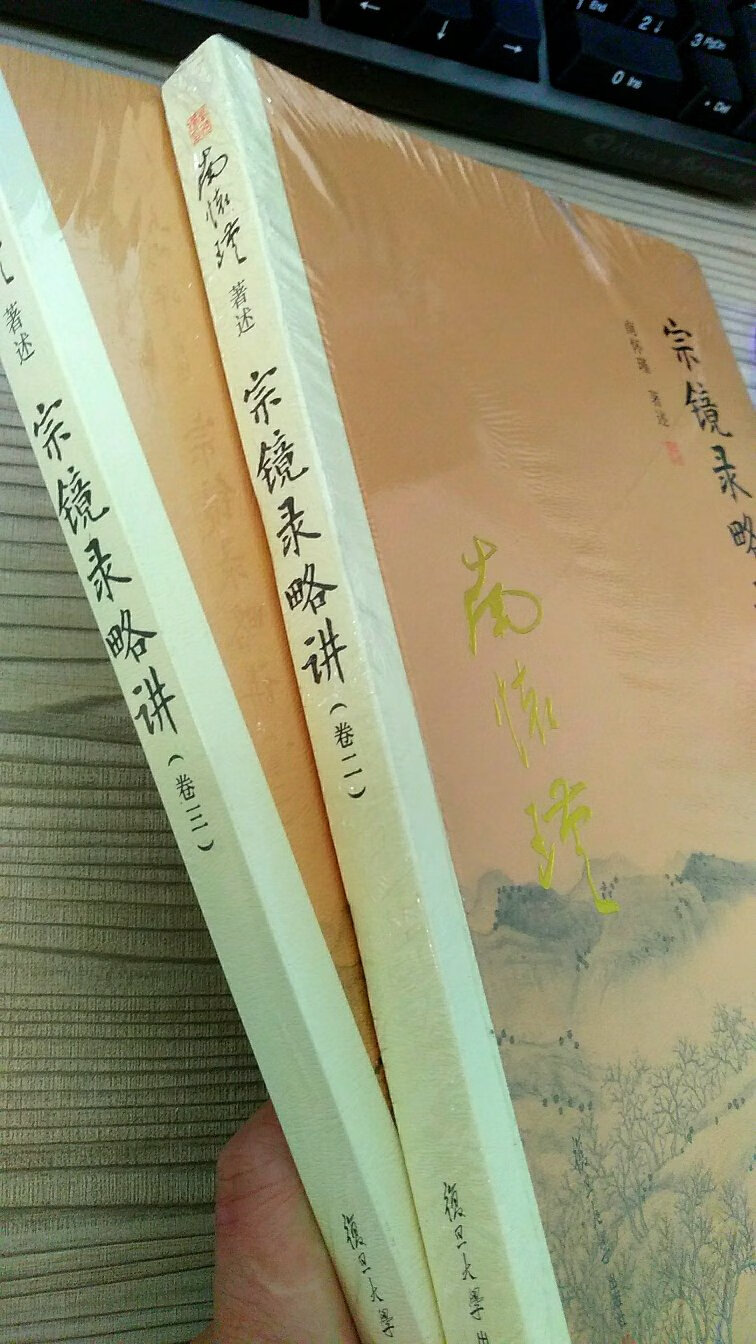 ←
↓
→
1 End
2↓
3 PgDn
0 Ins
. Del
著述
宗镜录略讲
(卷三)
復旦大學
南懷瑾
著述
宗镜录略讲
(卷二)
復旦大學出
南怀瑾 著述
宗镜录略
南懷瑾